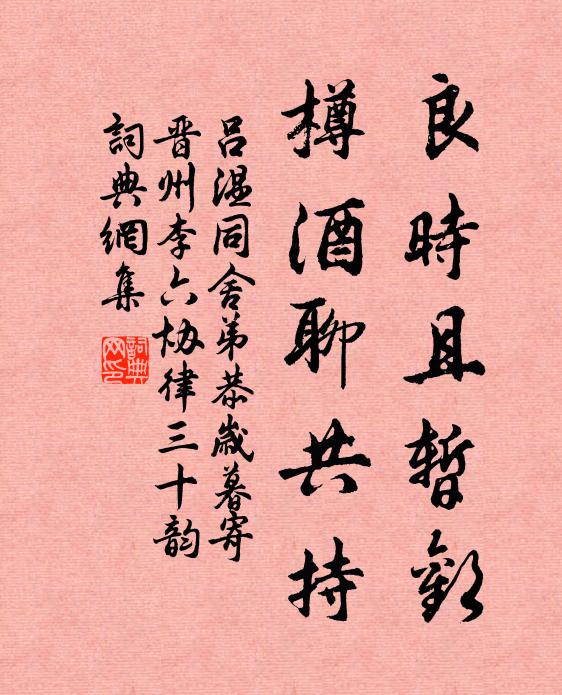 良時且暫歡
樽酒聊共持
呂温同舍弟恭歲暮寄
晋州李六协律三十韵
詞典網集
詞典網印